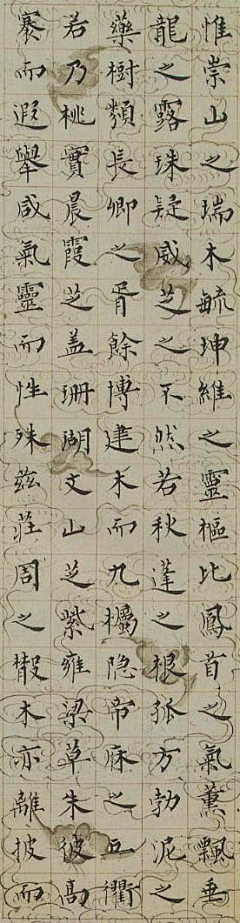 惟崇山之瑞木毓坤維之靈樞比鳳首之氣薰飄垂
龍之露珠疑威芝之不然若秋蓬之根孤方勃泥之
藥樹類長卿之胥餘博建木而九欘隐帝庥之五衢
若乃桃實晨霞芝盖珊瑚文山芝紫雍梁草朱彼高
褰而遐舉咸氣靈而性殊茲莊周之散木亦離披而